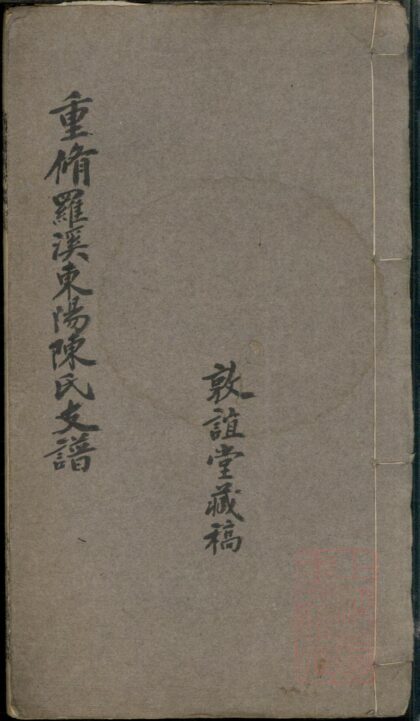 重脩羅溪東陽陳氏支譜
敦誼堂藏稿